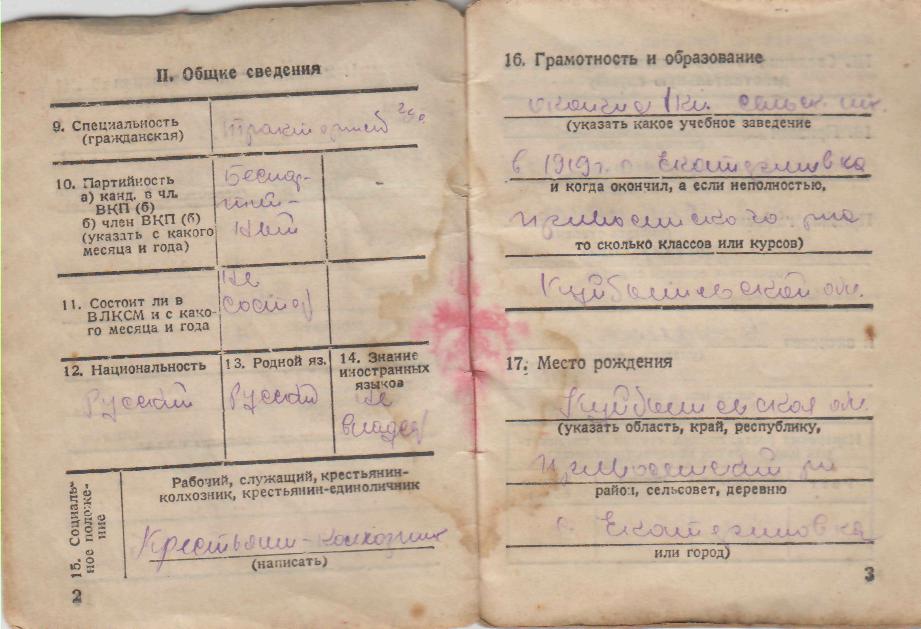 II. Общие сведения
9. Специальность
(гражданская)
тракторист
10. Партийность
а) канд. в чл.
ВКП (б)
б) член ВКП (б)
(указать с какого
месяца и года)
Беспар-
тий-
ный
-
11. Состоит ли в
ВЛКСМ и с како-
го месяца и года
не
состоу
12. Национальность
Русский
13. Родной яз.
Русский
14. Знание
иностранных
языков
не
владеу
15. Социаль-
ное положе-
ние
Рабочий, служащий, крестьянин-
колхозник, крестьянин-единоличник
Крестьянин-колхозник
(написать)
2
16. Грамотность и образование
окончил 1 кл. сельск. шк.
(указать какое учебное заведение
в 1919г. с Екатериновка
и когда окончил, а если неполностью,
то сколько классов или курсов)
Куйбышевской обл.
17. Место рождения
Куйбышевская обл.
(указать область, край, республику,
район, сельсовет, деревню
с. Екатериновка
или город)
3